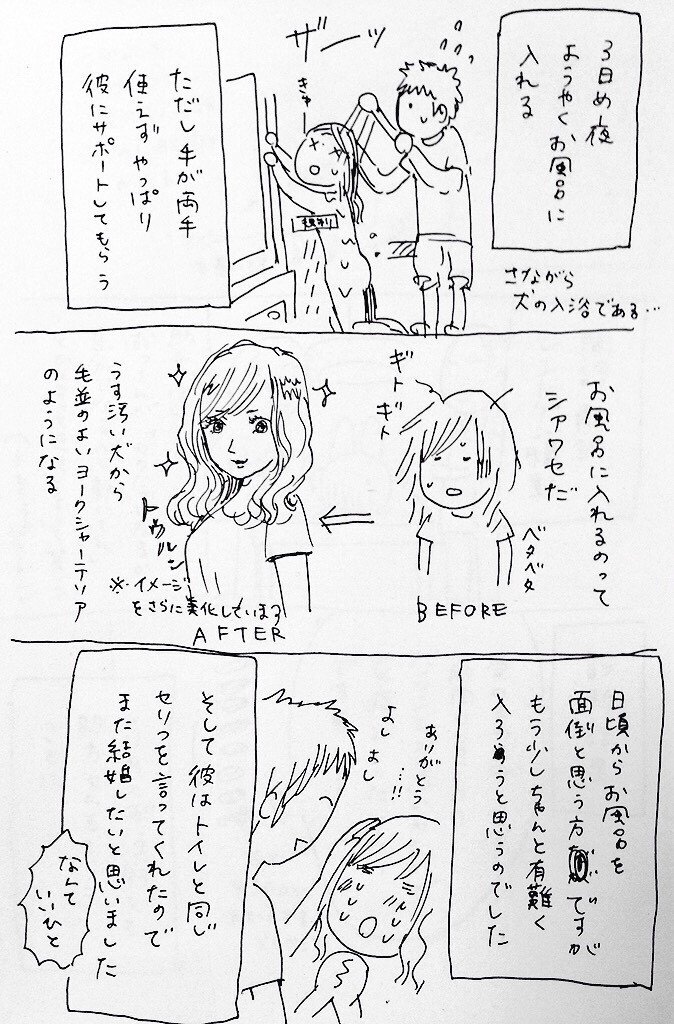 3日め夜
ようやくお風呂に
入れる
ザーッ
きゅー
ただし手が両手
使えずやっぱり
彼にサポートしてもらう
さながら
犬の入浴である…
お風呂に入れるのって
シアワセだ
ギトギト
ベタベタ
BEFORE
トゥルン
※イメージ
をさらに美化しています
AFTER
うす汚い犬から
毛並のよいヨークシャーテリア
のようになる
日頃からお風呂を
面倒と思う方ですが
もう少しちゃんと有難く
入ろうと思うのでした
ありがとう
…!!
よしよし
そして彼はトイレと同じ
セリフを言ってくれたので
また結婚したいと思いました
なんて
いいひと